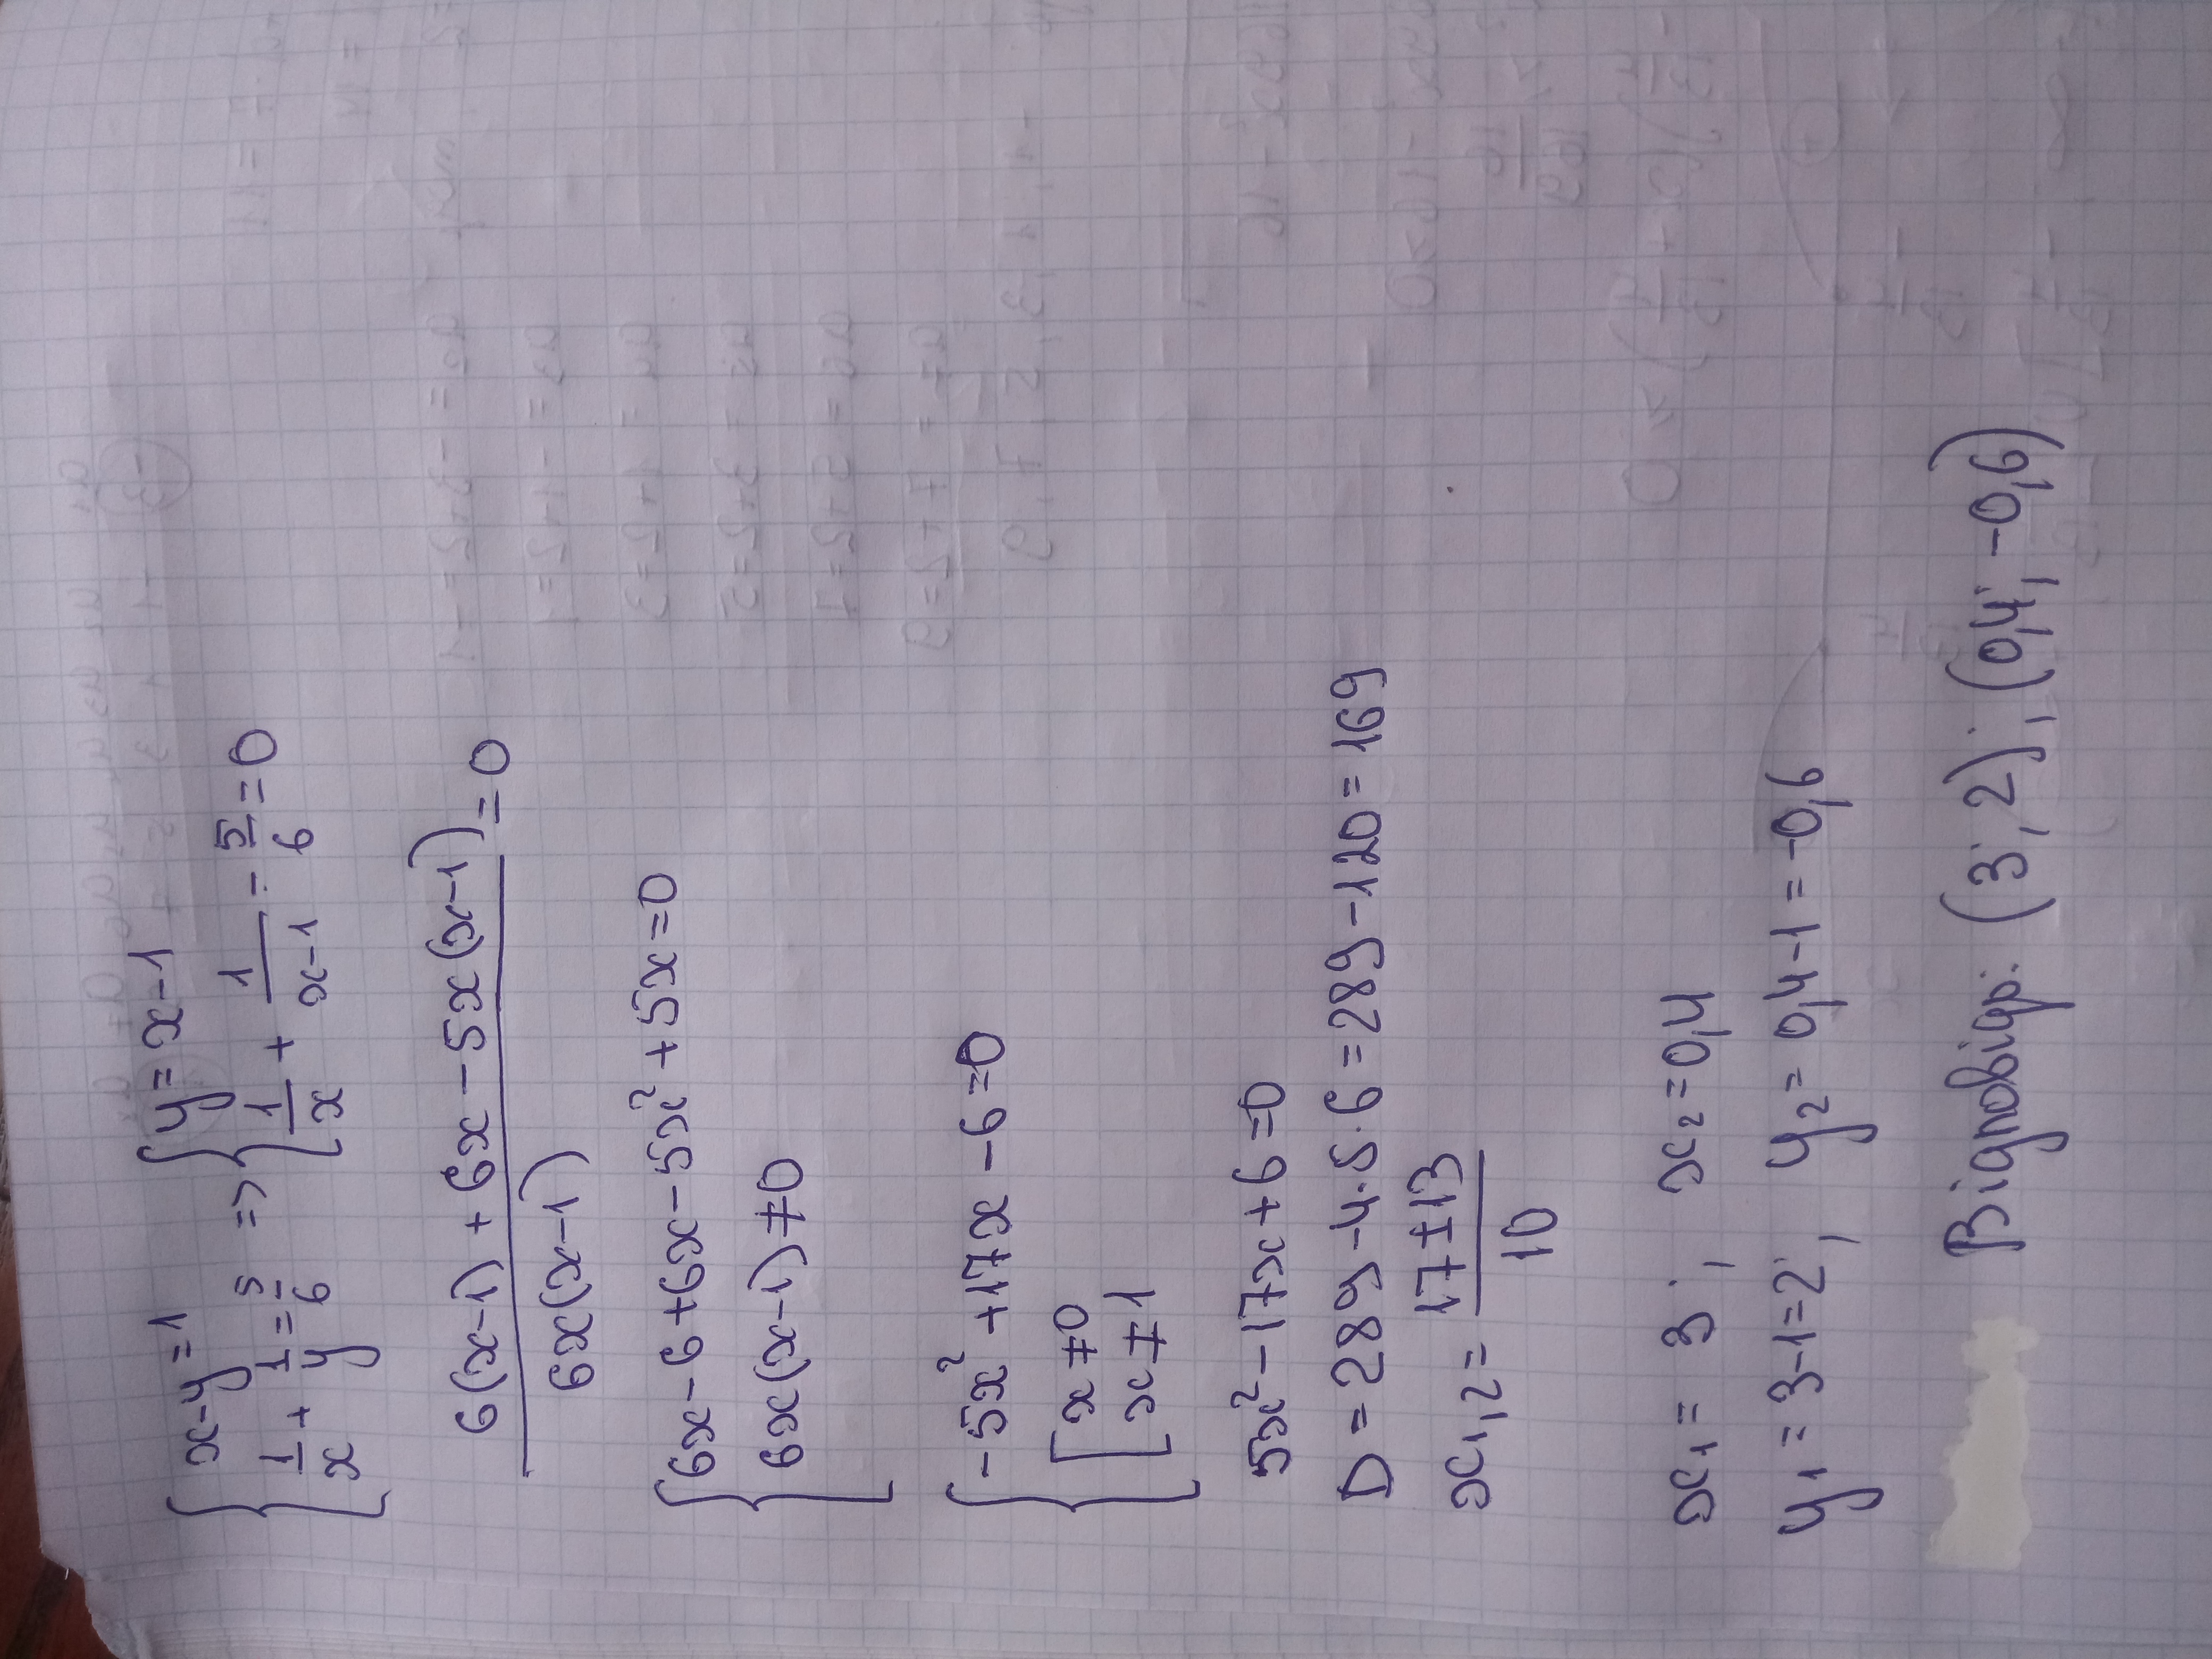 {x-y=1 => {y=x-1
1/x + 1/y = 5/6 1/x + 1/x-1 - 5/6 = 0
6(x-1) + 6x - 5x(x-1) / 6x(x-1) = 0
{6x-6+6x-5x²+5x=0
6x(x-1)≠0
{-5x²+17x-6=0
[x≠0
x≠1
5x²-17x+6=0
D=289-4·5·6=289-120=169
x1,2= 17±13 / 10
x1= 3; x2=0,4
y1=3-1=2; y2=0,4-1=-0,6
Відповідь: (3; 2); (0,4; -0,6)